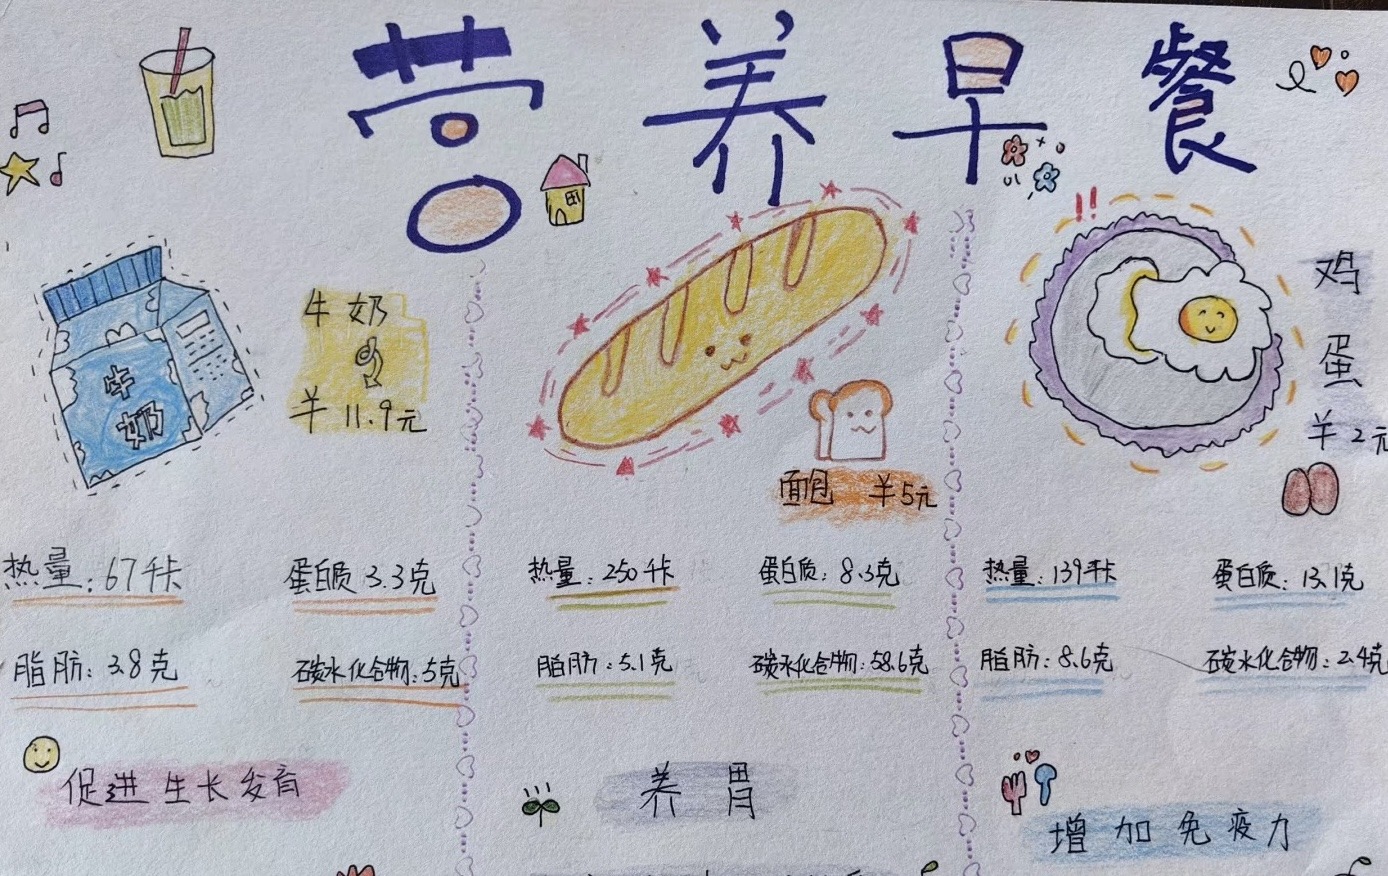 营养早餐
牛奶
牛奶
¥11.9元
面包 ¥5元
鸡蛋
¥2元
热量：67千卡
蛋白质3.3克
脂肪：3.8克
碳水化合物：5克
促进生长发育
热量：250千卡
蛋白质：8.3克
脂肪：5.1克
碳水化合物：58.6克
养胃
热量：139千卡
蛋白质：13.1克
脂肪：8.6克
碳水化合物：2.4克
增加免疫力